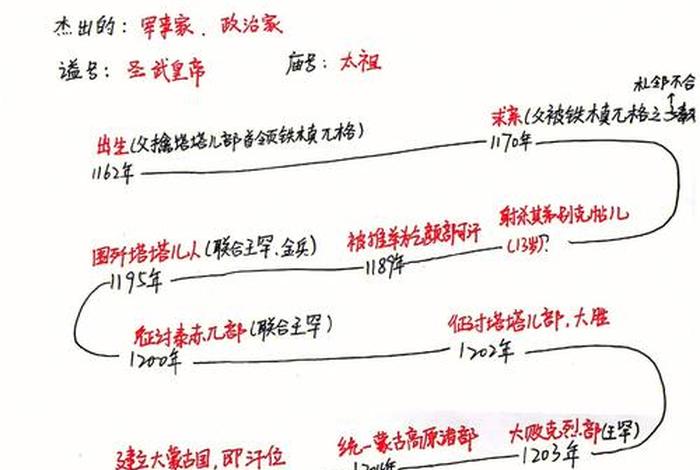 杰出的：军事家、政治家
谥号：圣武皇帝 庙号：太祖
札邻不合
出生(父擒塔塔儿部首领铁木真兀格)
1162年
求亲(父被铁木真兀格之子毒
1170年
射杀其弟别克帖儿
(13岁)?
被推举为乞颜部可汗
1189年
围歼塔塔儿人(联合王罕、金兵)
1195年
征讨泰赤兀部(联合王罕)
1200年
征讨塔塔儿部,大胜
1202年
大败克烈部(王罕)
1203年
统一蒙古高原诸部
建立大蒙古国,即汗位